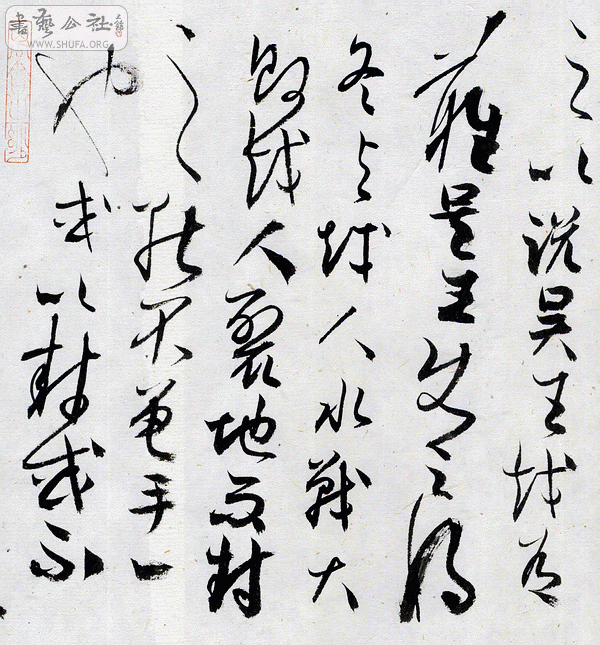 之以說吴王越有
難吴王使之將
冬与越人水戰大
敗越人裂地而封
之能不龜手一
也或以封或不
書藝公社
WWW.SHUFA.ORG